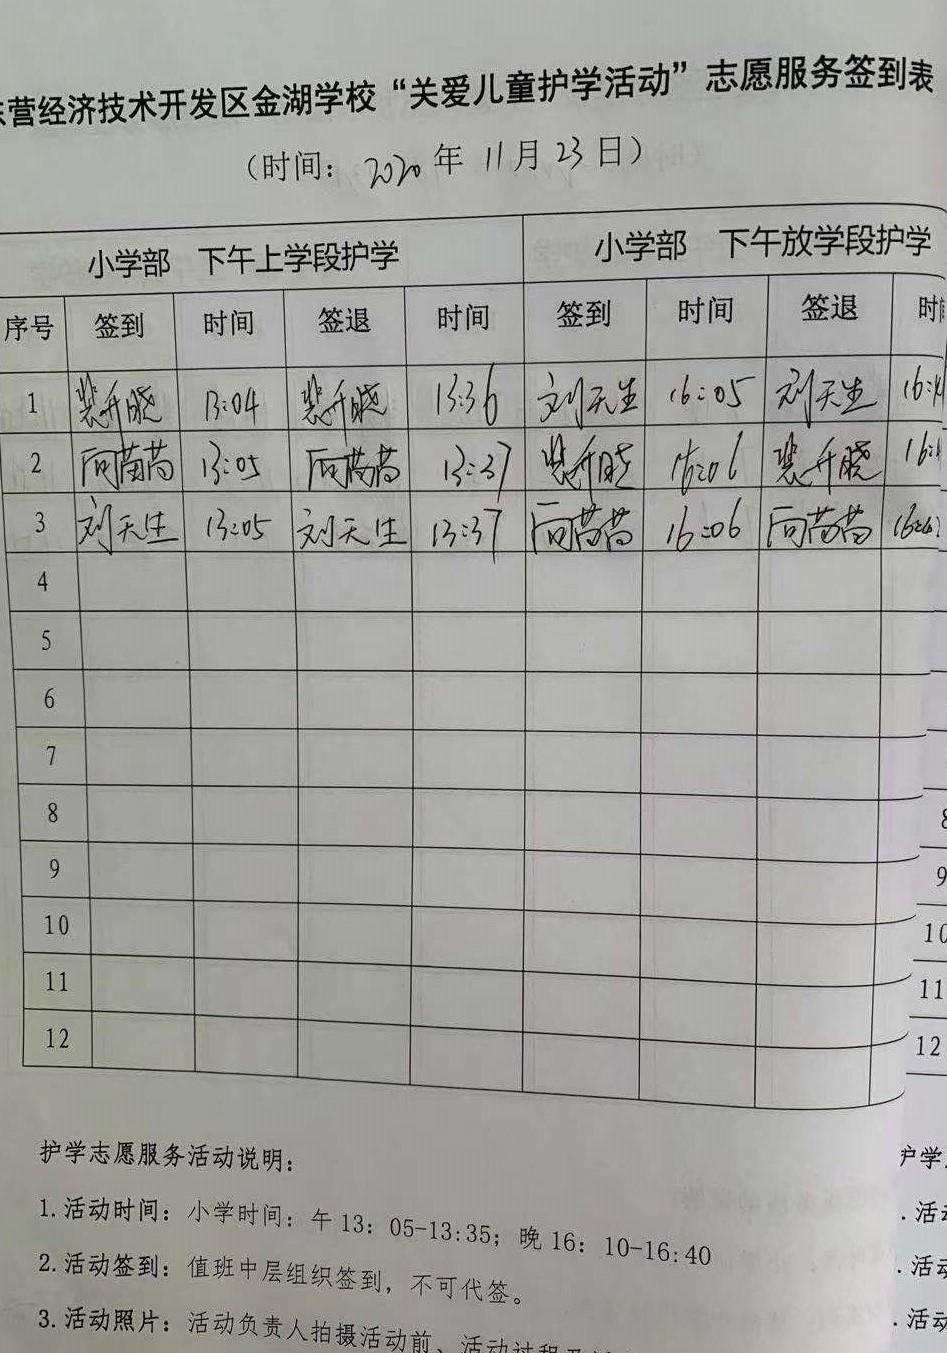 营经济技术开发区金湖学校“关爱儿童护学活动”志愿服务签到表
（时间：2020年11月23日）
小学部 下午上学段护学 小学部 下午放学段护学
序号 签到 时间 签退 时间 签到 时间 签退 时
1 裴升晓 13:04 裴升晓 13:36 刘天生 16:05 刘天生 16:
2 向苗苗 13:05 向苗苗 13:37 裴升晓 16:06 裴升晓 16:
3 刘天生 13:05 刘天生 13:37 向苗苗 16:06 向苗苗 16:
4
5
6
7
8 8
9 9
10 10
11 11
12 12
护学志愿服务活动说明： 护学
1.活动时间：小学时间：午13：05-13:35；晚16：10-16:40 .活动
2.活动签到：值班中层组织签到，不可代签。 .活动
3.活动照片：活动负责人拍摄活动前、活动过程及 .活动